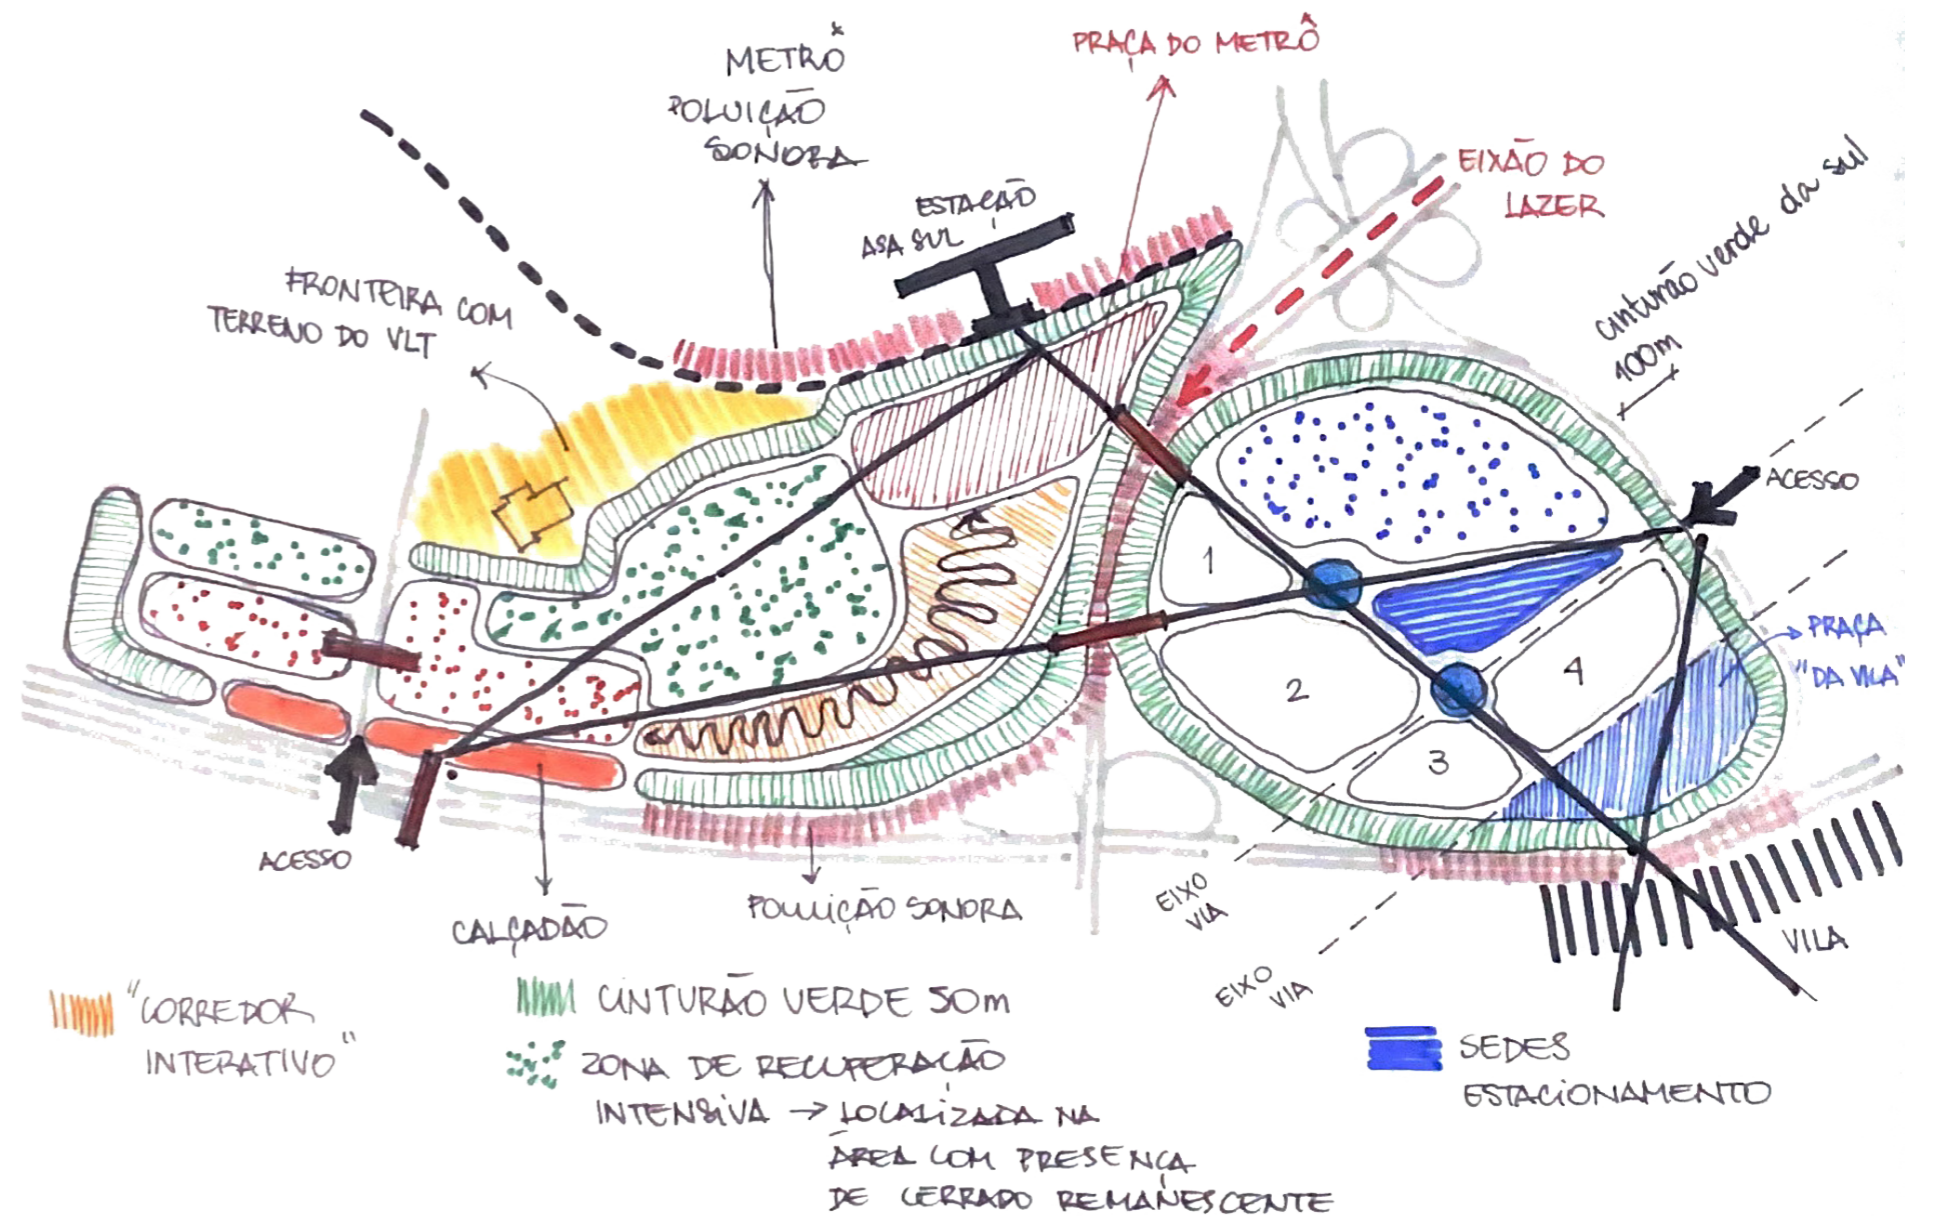 METRÔ
POLUIÇÃO
SONORA
PRAÇA DO METRÔ
EIXÃO DO
LAZER
ESTAÇÃO
ASA SUL
cinturão verde da sul
100m
FRONTEIRA COM
TERRENO DO VLT
ACESSO
1
2
3
4
PRAÇA
"DA VILA"
ACESSO
CALÇADÃO
POLUIÇÃO SONORA
EIXO
VIA
EIXO
VIA
VILA
"CORREDOR
INTERATIVO"
CINTURÃO VERDE 50m
ZONA DE RECUPERAÇÃO
INTENSIVA → LOCALIZADA NA
ÁREA COM PRESENÇA
DE CERRADO REMANESCENTE
SEDES
ESTACIONAMENTO